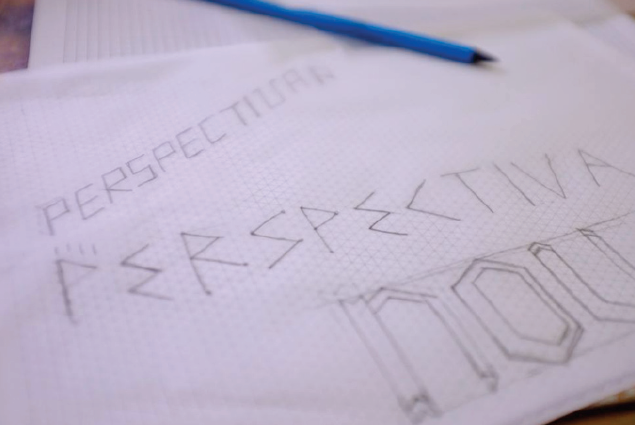 PERSPECTIVAR
PERSPECTIVA
nou